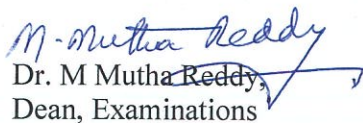 M. Mutha Reddy
Dr. M Mutha Reddy,
Dean, Examinations